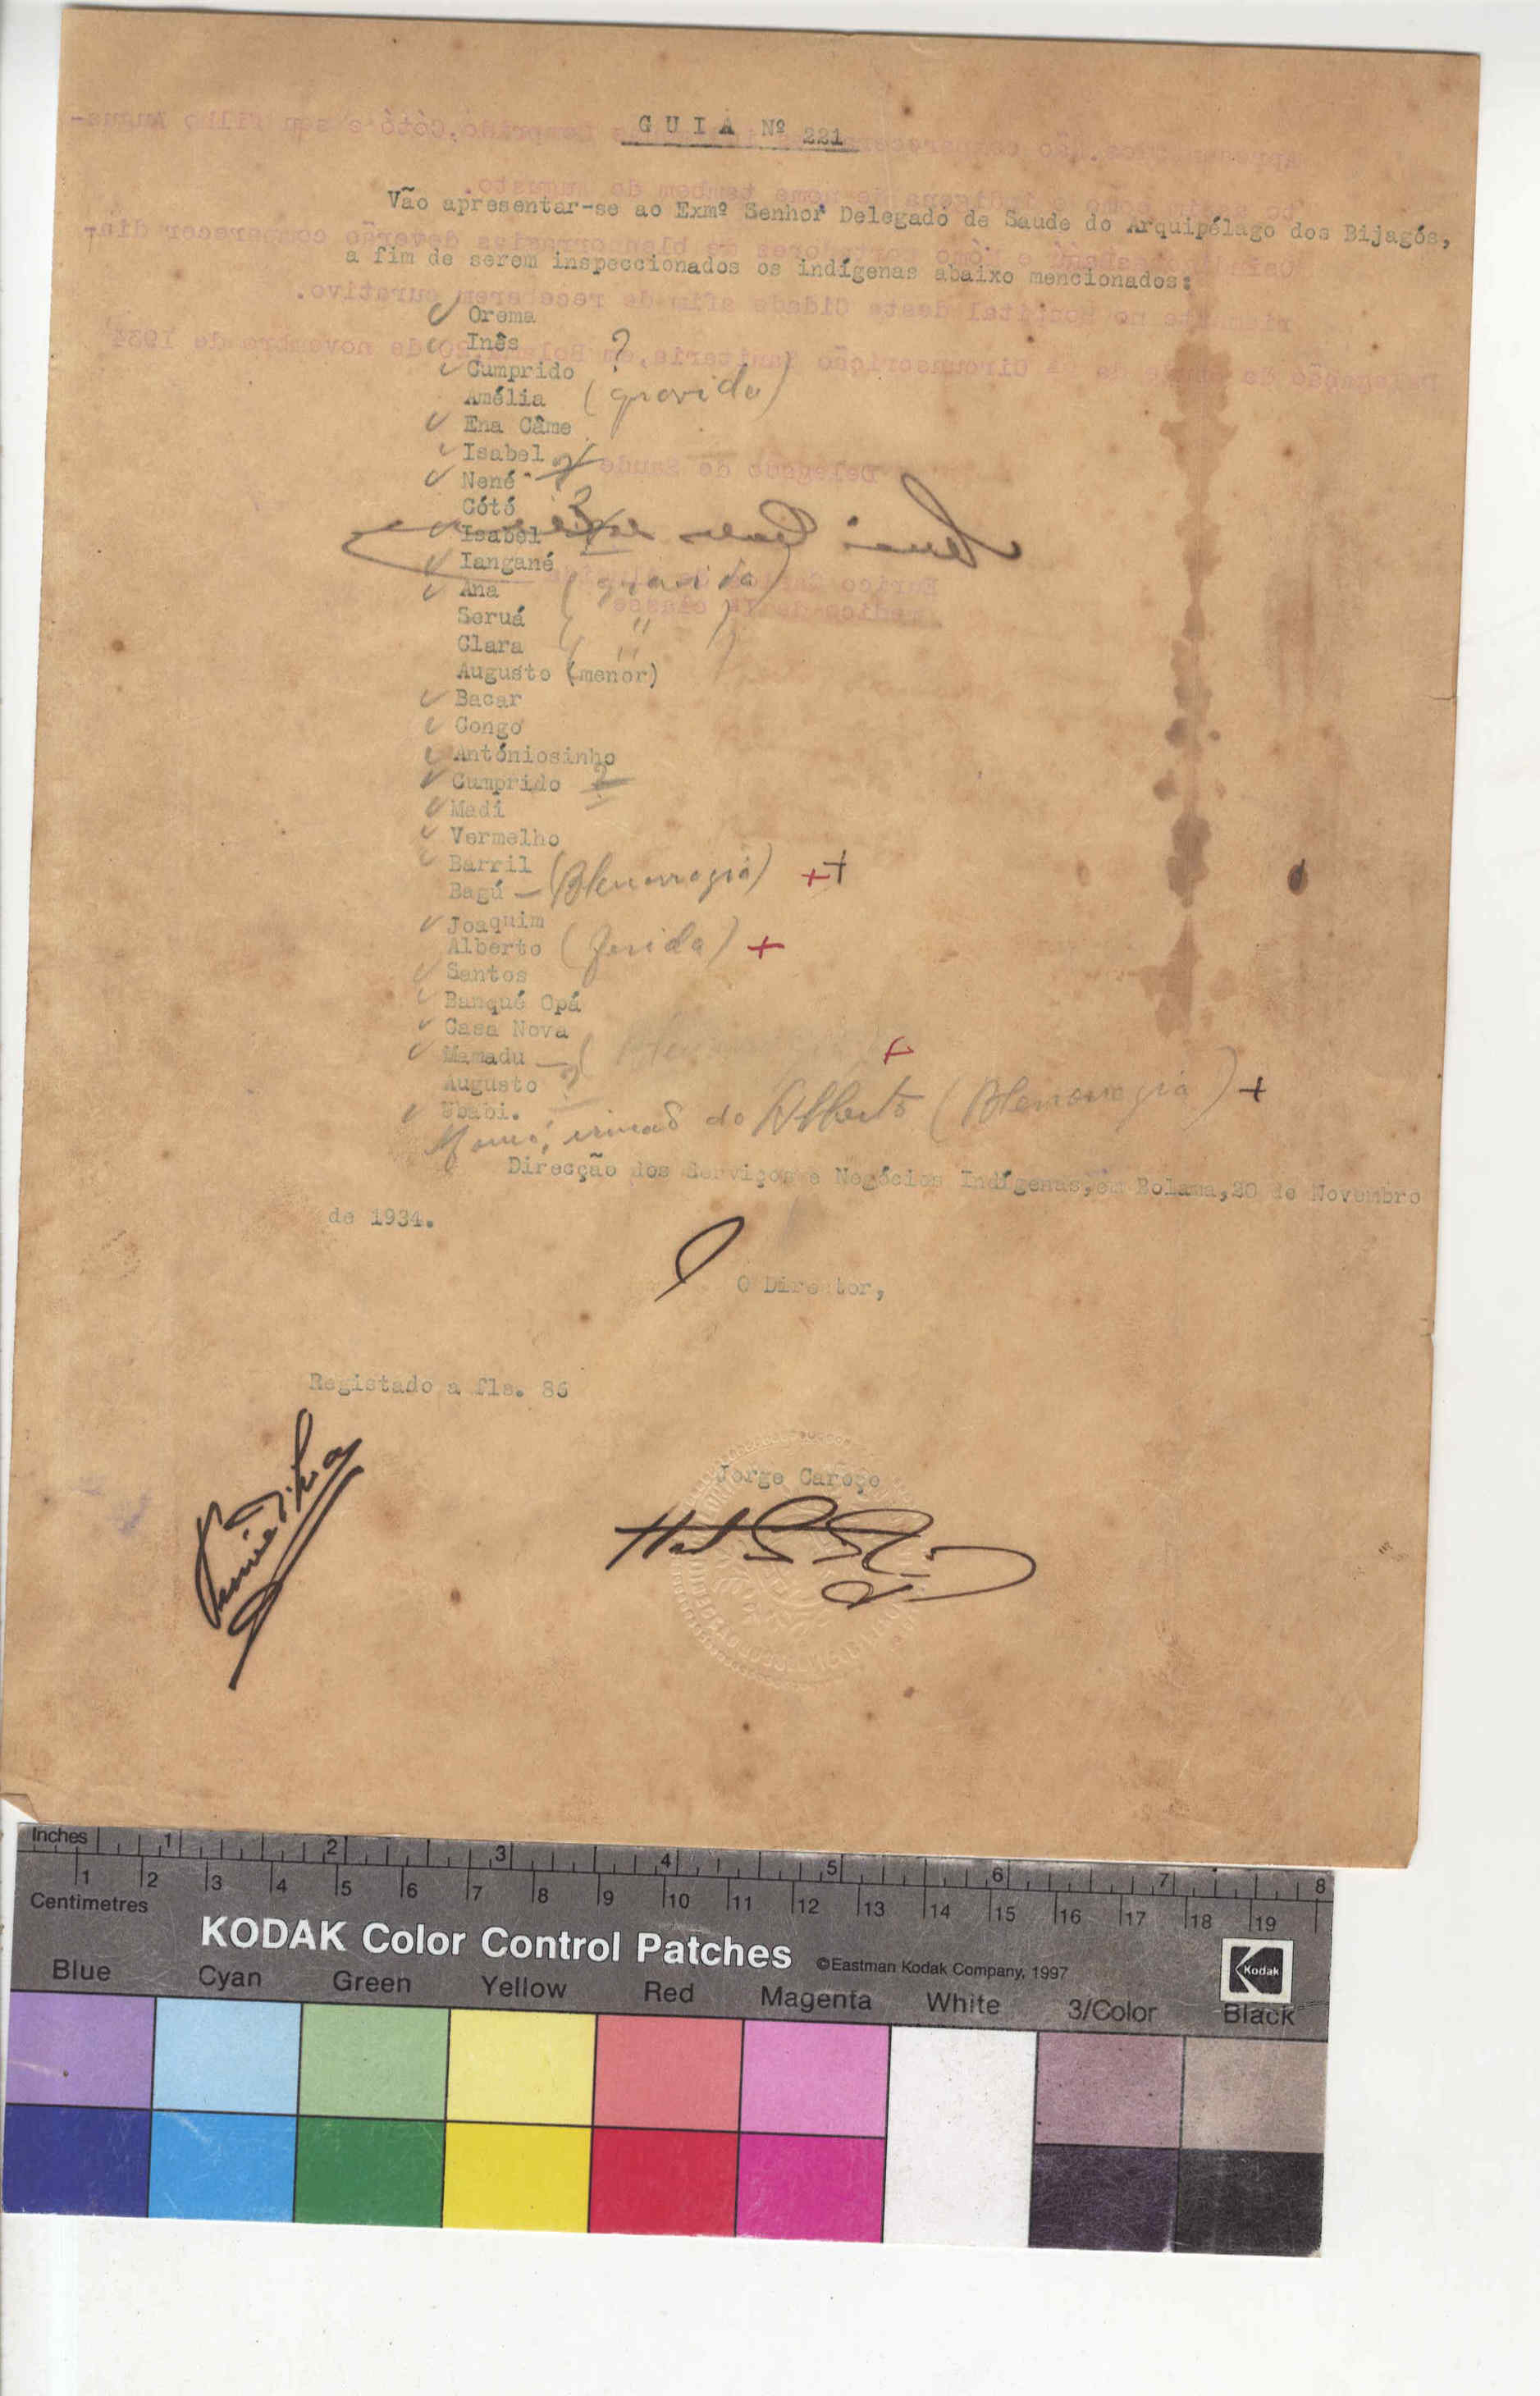 GUIA Nº 221
Vão apresentar-se ao Exmº Senhor Delegado de Saude do Arquipélago dos Bijagós,
a fim de serem inspeccionados os indígenas abaixo mencionados:
Orema
Inês
Cumprido ?
Amélia (gravida)
Ena Câme
Isabel
Nené ?
Cótó
Isabel ?
Iangané
Ana (gravida)
Seruá ( " )
Clara ( " )
Augusto (menor)
Bacar
Congo
Antóniosinho
Cumprido ?
Madi
Vermelho
Barril
Bagú - (Blenorragia) ++
Joaquim
Alberto (ferida) +
Santos
Banqué Opá
Casa Nova
Mamadu - ( +
Augusto ?
Ubabi.
irmão do Alberto (Blenorragia) +
Direcção dos Serviços e Negócios Indígenas, em Bolama, 20 de Novembro
de 1934.
O Director,
Registado a fls. 86
Jorge Caroço
Inches 1 2 3 4 5 6 7 8
1 2 3 4 5 6 7 8 9 10 11 12 13 14 15 16 17 18 19
Centimetres
KODAK Color Control Patches ©Eastman Kodak Company, 1997 Kodak
Blue Cyan Green Yellow Red Magenta White 3/Color Black